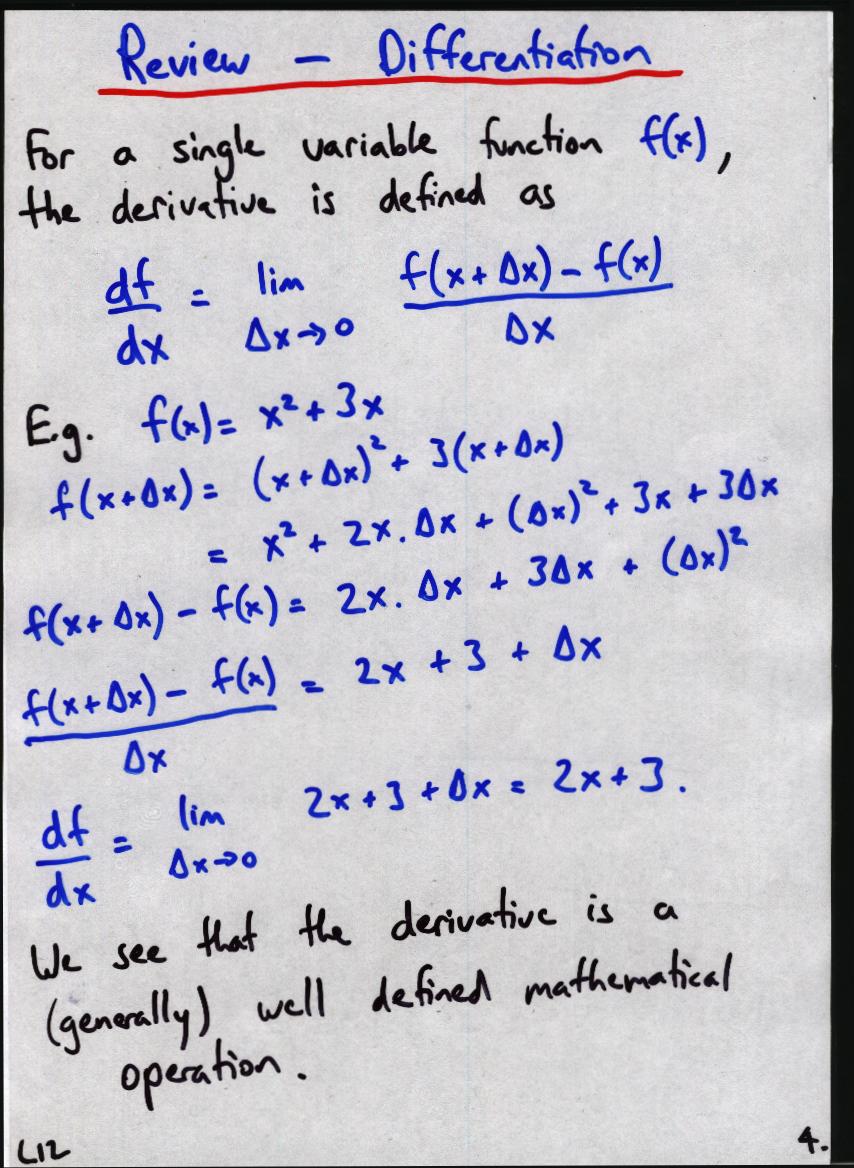 Review - Differentiation
For a single variable function f(x),
the derivative is defined as
df/dx = lim Δx→0 (f(x + Δx) - f(x))/Δx
E.g. f(x) = x² + 3x
f(x+Δx) = (x+Δx)² + 3(x+Δx)
= x² + 2x.Δx + (Δx)² + 3x + 3Δx
f(x+Δx) - f(x) = 2x.Δx + 3Δx + (Δx)²
(f(x+Δx) - f(x))/Δx = 2x + 3 + Δx
df/dx = lim Δx→0 2x+3+Δx = 2x+3.
We see that the derivative is a
(generally) well defined mathematical
operation.
L12 4.